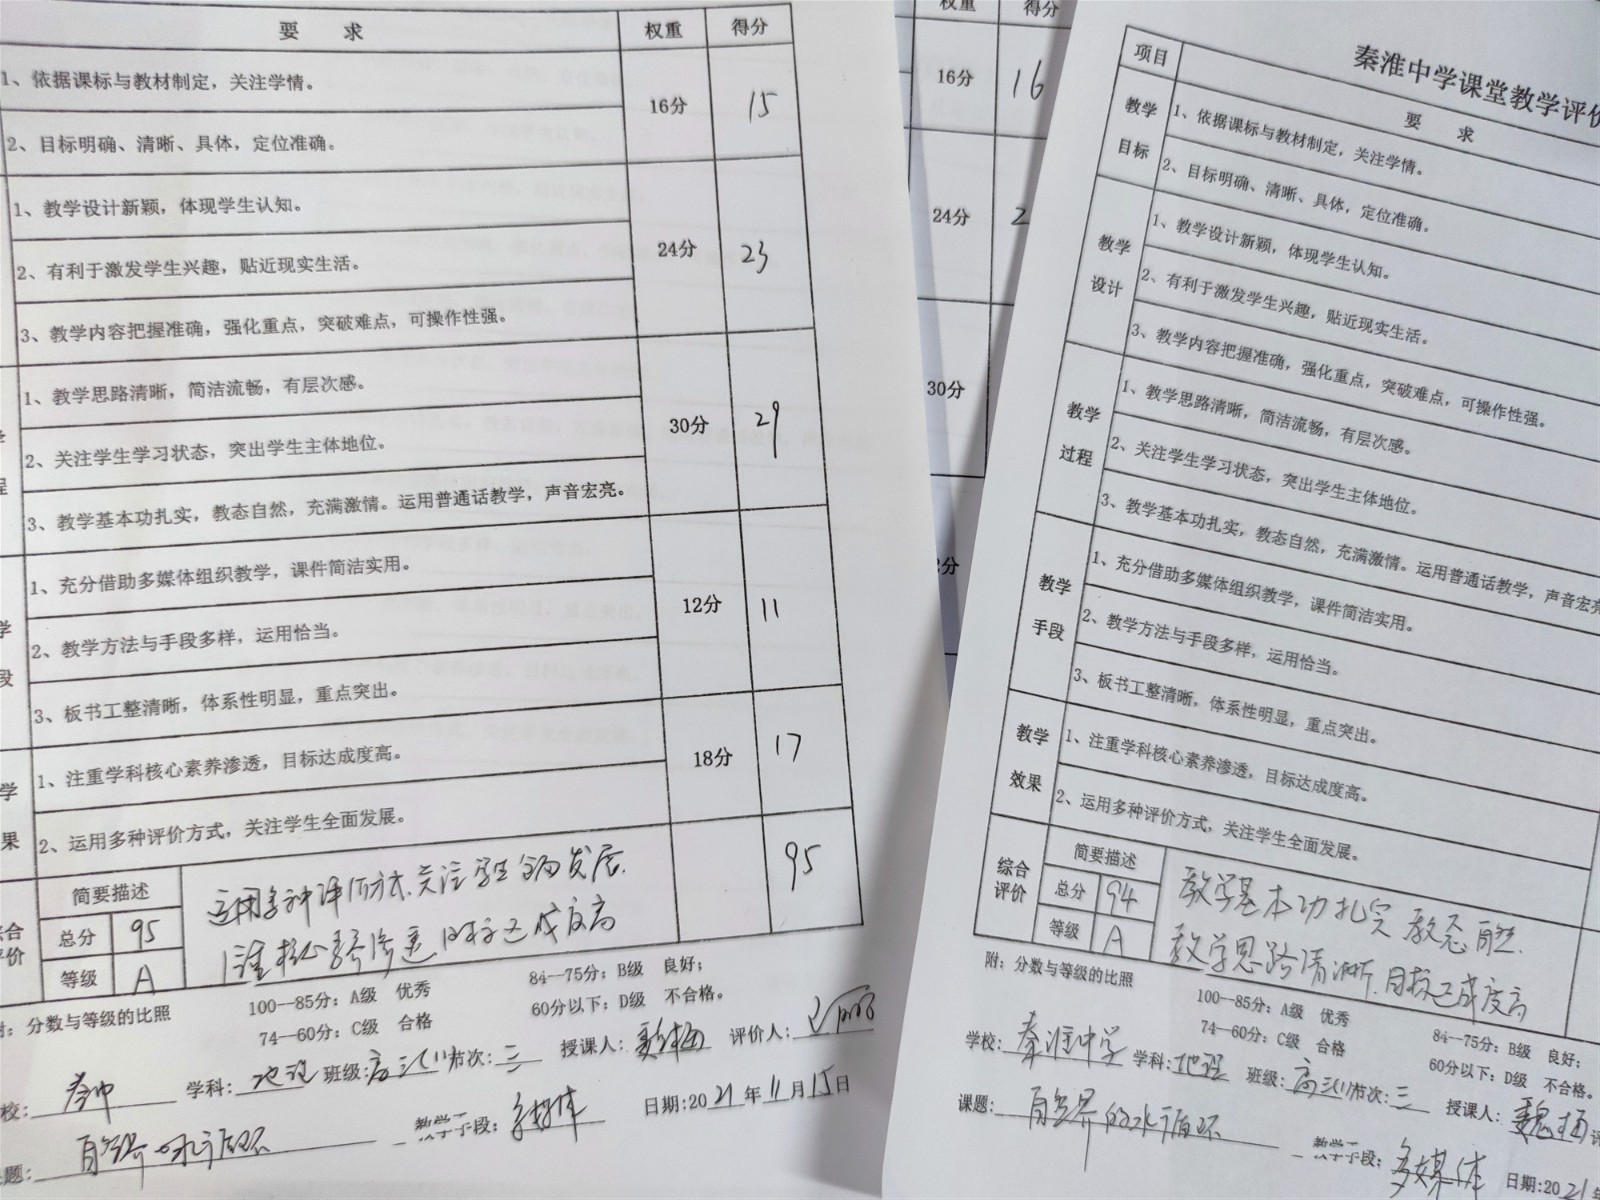 要 求 权重 得分
1、依据课标与教材制定，关注学情。
16分 15
2、目标明确、清晰、具体，定位准确。
1、教学设计新颖，体现学生认知。
2、有利于激发学生兴趣，贴近现实生活。
24分 23
3、教学内容把握准确，强化重点，突破难点，可操作性强。
1、教学思路清晰，简洁流畅，有层次感。
学
程
2、关注学生学习状态，突出学生主体地位。
30分 29
3、教学基本功扎实，教态自然，充满激情。运用普通话教学，声音宏亮。
1、充分借助多媒体组织教学，课件简洁实用。
学
段
2、教学方法与手段多样，运用恰当。
12分 11
3、板书工整清晰，体系性明显，重点突出。
学
果
1、注重学科核心素养渗透，目标达成度高。
18分 17
2、运用多种评价方式，关注学生全面发展。
综合
评价
简要描述
运用多种评价方式.关注学生全面发展.
注重核心素养渗透 目标达成度高
95
总分 95
等级 A
附：分数与等级的比照
100--85分：A级 优秀
84--75分：B级 良好；
74--60分：C级 合格
60分以下：D级 不合格。
校： 秦中 学科： 地理 班级： 高三(1) 节次： 三 授课人： 魏杨 评价人：
题： 自然界的水循环 教学手段： 多媒体 日期:2021年11月15日
权重 得分
16分 16
24分 2
30分
2分
秦淮中学课堂教学评价
项目 要 求
教学
目标
1、依据课标与教材制定，关注学情。
2、目标明确、清晰、具体，定位准确。
教学
设计
1、教学设计新颖，体现学生认知。
2、有利于激发学生兴趣，贴近现实生活。
3、教学内容把握准确，强化重点，突破难点，可操作性强。
教学
过程
1、教学思路清晰，简洁流畅，有层次感。
2、关注学生学习状态，突出学生主体地位。
3、教学基本功扎实，教态自然，充满激情。运用普通话教学，声音宏亮
教学
手段
1、充分借助多媒体组织教学，课件简洁实用。
2、教学方法与手段多样，运用恰当。
3、板书工整清晰，体系性明显，重点突出。
教学
效果
1、注重学科核心素养渗透，目标达成度高。
2、运用多种评价方式，关注学生全面发展。
综合
评价
简要描述
教学基本功扎实 教态自然.
教学思路清晰.目标达成度高
总分 94
等级 A
附：分数与等级的比照
100--85分：A级 优秀
84--75分：B级 良好；
74--60分：C级 合格
60分以下：D级 不合格。
学校： 秦淮中学 学科： 地理 班级： 高三(1) 节次： 三 授课人： 魏杨 评
课题： 自然界的水循环 教学手段： 多媒体 日期:2021年